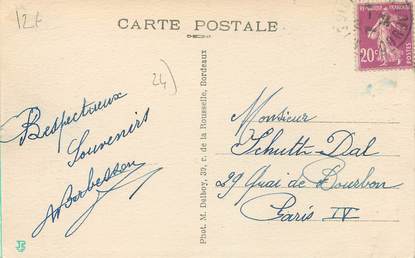 12€
CARTE POSTALE
24)
20c
POSTES
Respectueux
Souvenirs
Monsieur
Schutt-Dal
29 Quai de Bourbon
Paris IV
Phot. M. Delboy, 39, r. de la Rousselle, Bordeaux